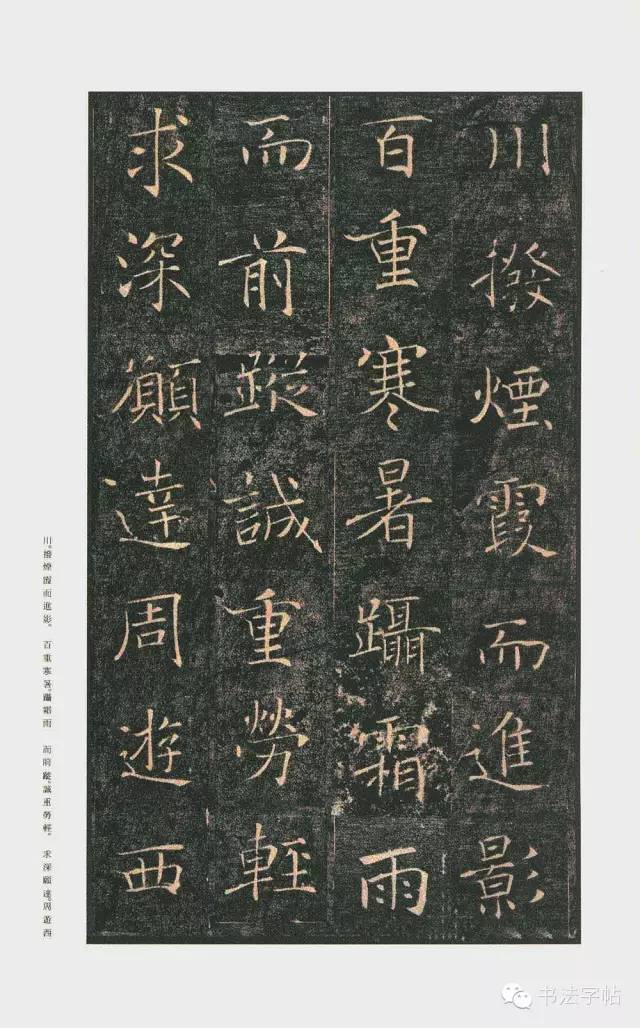 川撥煙霞而進影
百重寒暑躡霜雨
而前蹤誠重勞輕
求深願達周遊西
川。撥煙霞而進影。百重寒暑。躡霜雨而前蹤。誠重勞輕。求深願達。周遊西
书法字帖